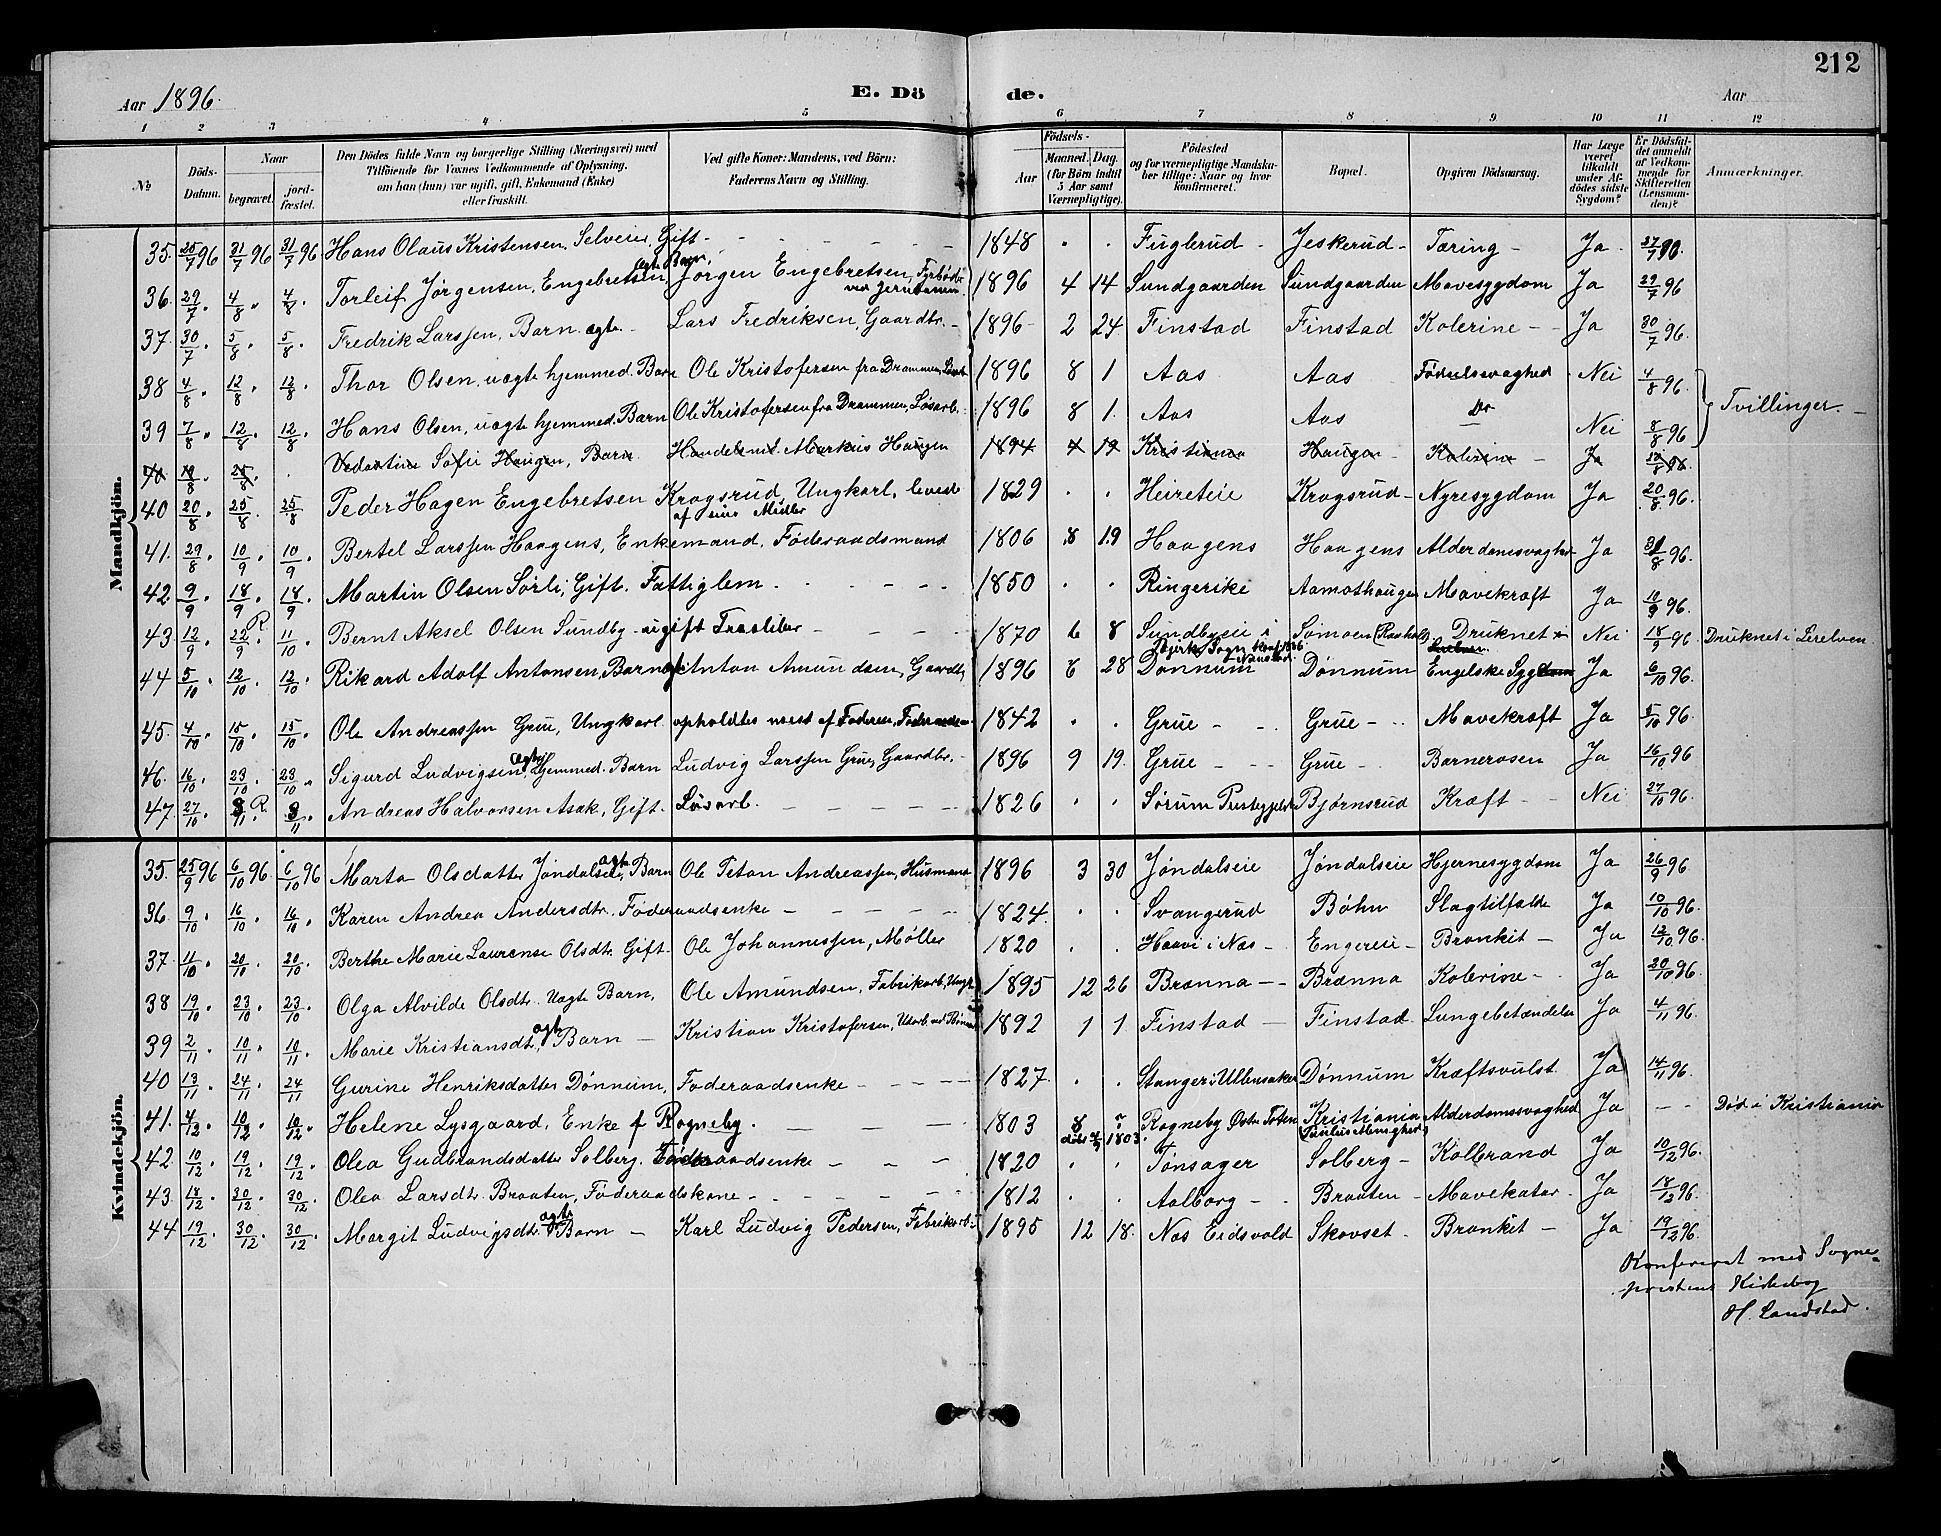 212
Aar 1896. E. Dö de. Aar
1 2 3 4 5 6 7 8 9 10 11 12
No Döds-Datum. Naar begravet. jordfæstet. Den Dödes fulde Navn og borgerlige Stilling (Næringsvei) med Tilföiende for Voxnes Vedkommende af Oplysning, om han (hun) var ugift, gift, Enkemand (Enke) eller fraskilt. Ved gifte Koner: Mandens, ved Börn: Faderens Navn og Stilling. Födsels- Aar Maaned. Dag. (for Börn indtil 5 Aar samt Værnepligtige). Födested og for værnepligtige Mandskaber tillige: Naar og hvor konfirmeret. Bopæl. Opgiven Dödsaarsag. Har Læge været tilkaldt under Afdödes sidste Sygdom? Er Dödsfaldet anmeldt af Vedkommende for Skifteretten (Lensmanden)? Anmærkninger.
Mandkjön.
35. 25/7 96 31/7 96 31/7 96 Hans Olaus Kristensen, Selveier, Gift 1848 Fuglerud Jeskerud Tæring Ja 27/7 96.
36. 29/7 4/8 4/8 Torleif Jørgensen, Engebretsen ægte Barn, Jørgen Engebretsen, Fyrbøder ved Jernbanen 1896 4 14 Sundgaarden Sundgaarden Mavesygdom Ja 29/7 96
37. 30/7 5/8 5/8 Fredrik Larssen, Barn ægte Lars Fredriksen, Gaardbr. 1896 2 24 Finstad Finstad Kolerine Ja 30/7 96.
38 4/8 12/8 12/8 Thor Olsen, uægte hjemmed. Barn Ole Kristofersen fra Drammen, 1896 8 1 Aas Aas Fødselssvaghed Nei 4/8 96. Tvillinger.
39 7/8 12/8 12/8 Hans Olsen, uægte hjemmed. Barn Ole Kristofersen fra Drammen, Løsarb. 1896 8 1. Aas Aas Do Nei 8/8 96
Sofie Haugen, Barn Handelsmd. Markus Haugen 1894 4 19 Kristiania Haugen Kolerine Ja
40 20/8 25/8 25/8 Peder Hagen Engebretsen Krogsrud, Ungkarl, leved af sine Midler 1829 Heireteie Krogsrud Nyresygdom Ja 20/8 96.
41. 29/8 10/9 10/9 Bertel Larssen Haagens, Enkemand, Føderaadsmand 1806 8 19 Haagens Haagens Alderdomsvaghed Ja 31/8 96.
42 9/9 18/9 18/9 Martin Olsen Sørli, Gift. Fattiglem 1850 Ringerike Aamothaugen Mavekræft Ja 10/9 96.
43 12/9 22/9 R. 11/10 Bernt Aksel Olsen Sundby ugift Træsliber 1870 6 8 Sundbyeie i Sømoen (Raaholt) Druknet Nei 18/9 96 Druknet i Leirelven
44 5/10 12/10 12/10 Rikard Adolf Antonsen, Barn af Anton Amundsen, Gaardb. 1896 6 28 Dønnum Dønnum Engelske Sygdom Ja 6/10 96.
45. 4/10 15/10 15/10 Ole Andreassen Grue, Ungkarl opholdtes mest af Faderen, 1842 Grue Grue Mavekræft Ja 5/10 96.
46. 16/10 23/10 23/10 Sigurd Ludvigsen, ægte Hjemmed. Barn Ludvig Larssen Grue, Gaardbr. 1896 9 19. Grue Grue Barnerosen Ja 16/10 96
47. 27/10 3/11 R. 3/11 Andreas Halvorsen Asak, Gift. Løsarb. 1826 Sørum Præstegjeld Bjørnsrud Kræft Nei 27/10 96.
Kvindekjön.
35. 25/9 96 6/10 96 6/10 96 Marta Olsdatter Jøndalseie, ægte Barn Ole Petan Andreassen, Husmand 1896 3 30 Jøndalseie Jøndalseie Hjernesygdom Ja 26/9 96
36. 9/10 16/10 16/10 Karen Andrea Andersdtr. Føderaadsenke 1824. Svangerud Bøhn Slagtilfælde Ja 10/10 96.
37 11/10 20/10 20/10 Berthe Marie Laurense Olsdtr. Gift Ole Johannessen, Møller 1820 Haavi i Næs Engereie Bronkit Ja 12/10 96.
38 19/10 23/10 23/10 Olga Alvilde Olsdtr. Uægte Barn, Ole Amundsen, Fabrikarb. Ungk. 1895 12 26 Brænna Brænna Kolerine Ja 20/10 96.
39 2/11 10/11 10/11 Marie Kristiansdtr, ægte Barn Kristian Kristofersen, 1892 1 1 Finstad Finstad Lungebetændelse Ja 4/11 96.
40 13/11 24/11 24/11 Gurine Henriksdatter Dønnum, Føderaadsenke 1827. Stanger i Ullensaker Dønnum Kræftsvulst Ja 14/11 96.
41. 4/12 10/12 10/12 Helene Lysgaard, Enke f Rogneby. 1803 8 ? døbt 1803. Rogneby Østre Toten Kristiania Paulus Menighed Alderdomssvaghed Ja Død i Kristiania
42. 10/12 19/12 19/12 Olea Gudbrandsdatter Solberg. Føderaadsenke 1820 Tønsager Solberg Kolbrand Ja 10/12 96.
43 18/12 30/12 30/12 Olea Larsdtr. Braaten, Føderaadskone 1812 Aalborg Braaten Mavekatar Ja 18/12 96.
44 19/12 30/12 30/12 Margit Ludvigsdtr. ægte Barn Karl Ludvig Pedersen, Fabrikarb. 1895 12 18. Næs Eidsvold Skovset Bronkit Ja 19/12 96.
Konfereret med Sogne-
præstens Kirkebog
H. Landstad.